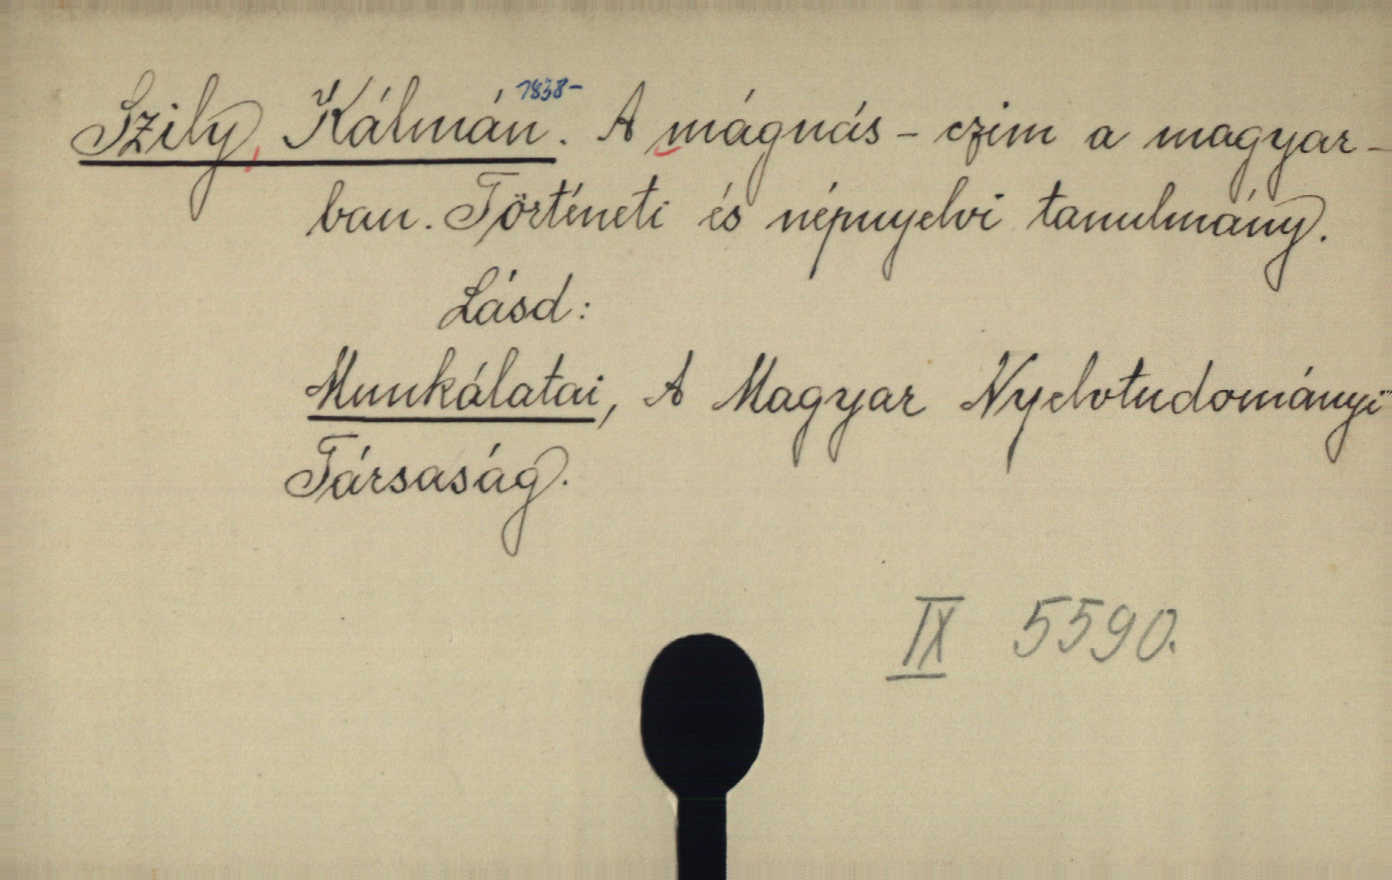 Szily, Kálmán. 1838- A mágnás - czim a magyar-
ban. Történeti és népnyelvi tanulmány.
Lásd:
Munkálatai, A Magyar Nyelvtudományi
Társaság.
IX 5590.